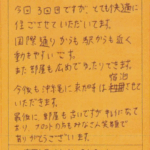 今回3回目ですが、とても快適に
住ごさせていただいてます。
国際通りからも駅からも近く
動きやすいです。
また部屋も広めでたいりできます。
今後も沖縄に来る時は
いただきます。
最後に、部屋も古いですが キレイになて
おり、スタッフの方もみなさん笑顔で
ありがとうございます。